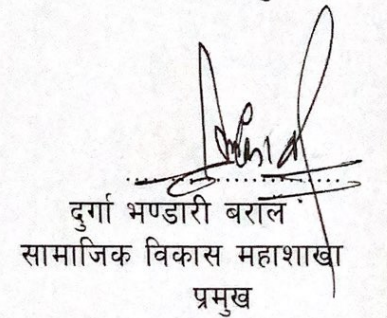 दुर्गा भण्डारी बराल
सामाजिक विकास महाशाखा
प्रमुख